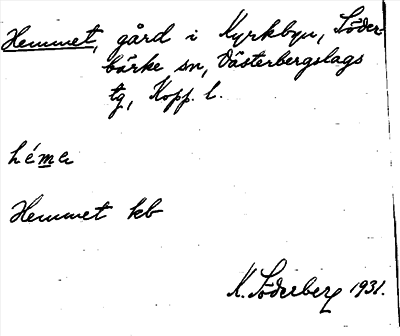 Hemmet, gård i Kyrkbyn, Söder-
bärke sn, Västerbergslags
tg, Kopp. l.
héme
Hemmet kb
K. Söderberg 1931.